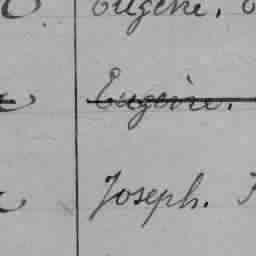 Eugène.
Eugène.
Joseph.